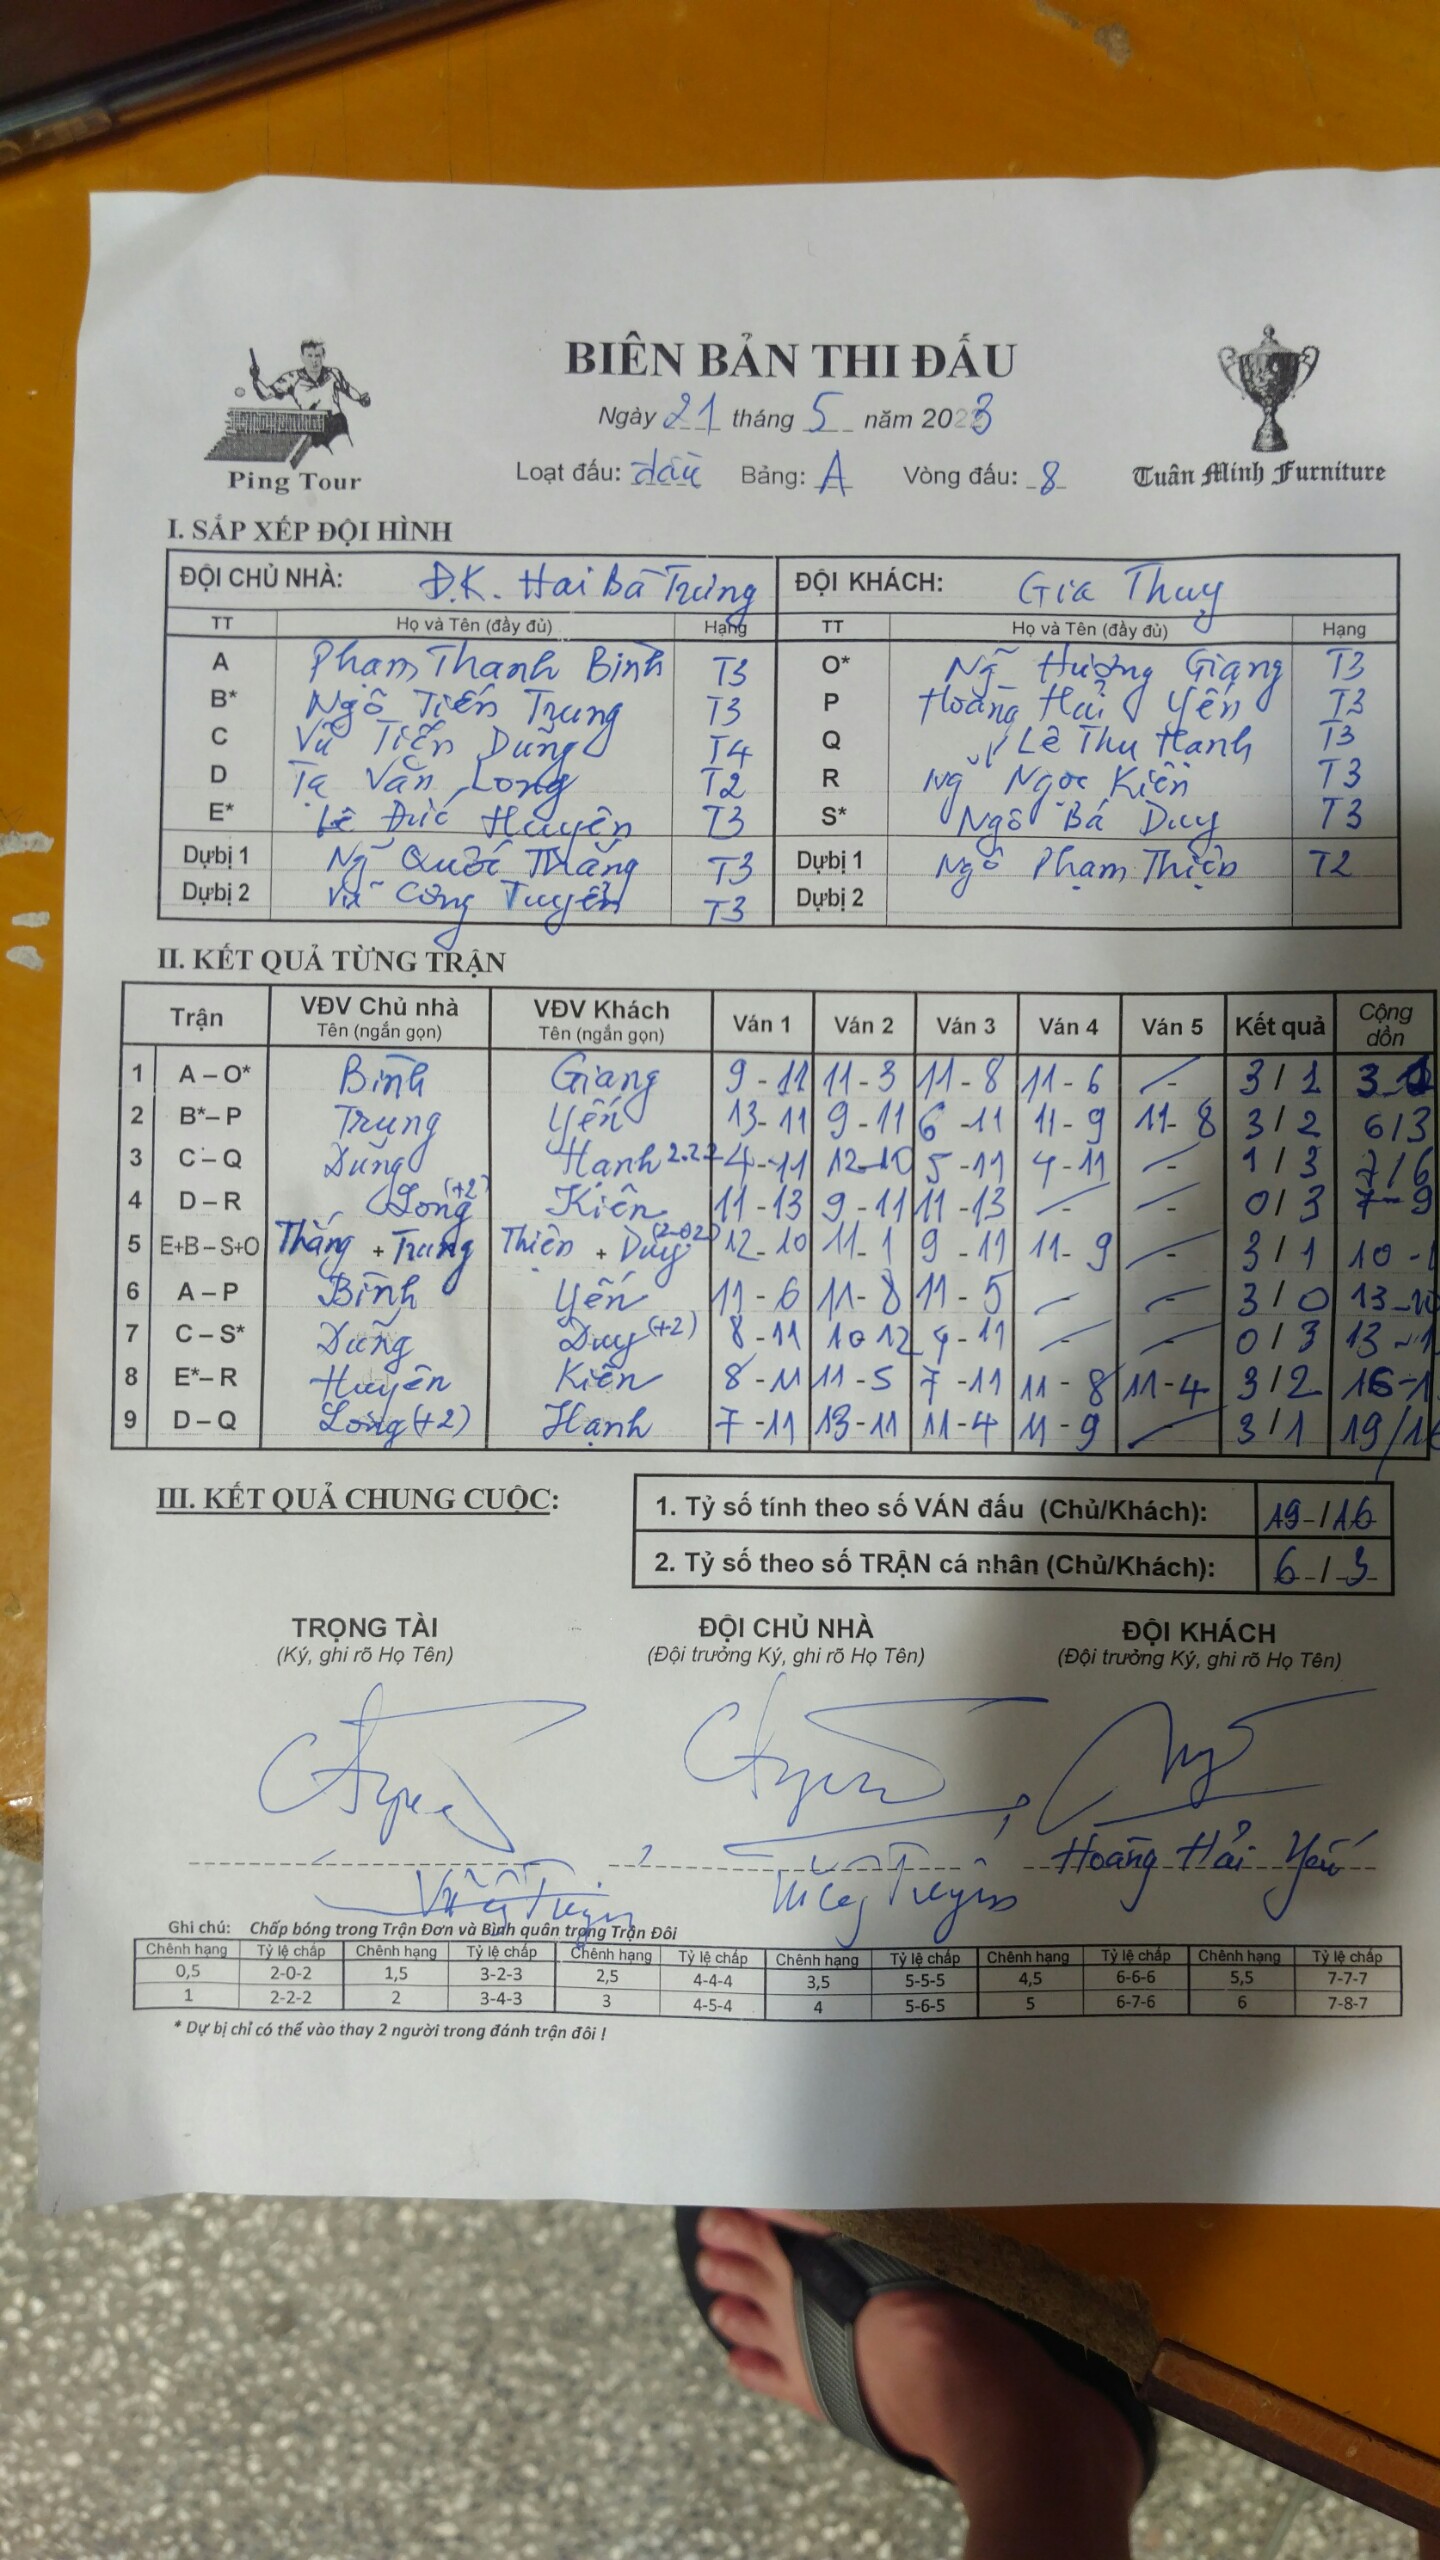 BIÊN BẢN THI ĐẤU
Ngày 21 tháng 5 năm 2023
Ping Tour
Loạt đấu: đấu Bảng: A Vòng đấu: 8
Tuấn Minh Furniture
I. SẮP XẾP ĐỘI HÌNH
ĐỘI CHỦ NHÀ: Đ.K. Hai Bà Trưng ĐỘI KHÁCH: Gia Thụy
TT Họ và Tên (đầy đủ) Hạng TT Họ và Tên (đầy đủ) Hạng
A Phạm Thanh Bình T3 O* Ng~ Hương Giang T3
B* Ngô Tiến Trung T3 P Hoàng Hải Yến T3
C Vũ Tiến Dũng T4 Q Lê Thu Hạnh T3
D Tạ Văn Long T2 R Ng Ngọc Kiên T3
E* Lê Đức Huyên T3 S* Ngô Bá Duy T3
Dự bị 1 Ng~ Quốc Thắng T3 Dự bị 1 Ngô Phạm Thiện T2
Dự bị 2 Vũ Công Tuyên T3 Dự bị 2
II. KẾT QUẢ TỪNG TRẬN
Trận VĐV Chủ nhà VĐV Khách Ván 1 Ván 2 Ván 3 Ván 4 Ván 5 Kết quả Cộng dồn
Tên (ngắn gọn) Tên (ngắn gọn)
1 A – O* Bình Giang 9 - 11 11 - 3 11 - 8 11 - 6 - 3 / 1 3 - 1
2 B* – P Trung Yến 13 - 11 9 - 11 6 - 11 11 - 9 11 - 8 3 / 2 6 / 3
3 C – Q Dũng Hạnh 2.2.2 4 - 11 12 - 10 5 - 11 4 - 11 - 1 / 3 7 / 6
4 D – R Long (+2) Kiên 11 - 13 9 - 11 11 - 13 - - 0 / 3 7 - 9
5 E+B – S+O Thắng + Trung Thiện + Duy (2-02) 12 - 10 11 - 1 9 - 11 11 - 9 - 3 / 1 10 -
6 A – P Bình Yến 11 - 6 11 - 8 11 - 5 - - 3 / 0 13 - 10
7 C – S* Dũng Duy (+2) 8 - 11 10 12 4 - 11 - - 0 / 3 13 - 1
8 E* – R Huyên Kiên 8 - 11 11 - 5 7 - 11 11 - 8 11 - 4 3 / 2 16 - 1
9 D – Q Long (+2) Hạnh 7 - 11 13 - 11 11 - 4 11 - 9 - 3 / 1 19 / 16
III. KẾT QUẢ CHUNG CUỘC:
1. Tỷ số tính theo số VÁN đấu (Chủ/Khách): 19 / 16
2. Tỷ số theo số TRẬN cá nhân (Chủ/Khách): 6 / 3
TRỌNG TÀI ĐỘI CHỦ NHÀ ĐỘI KHÁCH
(Ký, ghi rõ Họ Tên) (Đội trưởng Ký, ghi rõ Họ Tên) (Đội trưởng Ký, ghi rõ Họ Tên)
Hoàng Hải Yến
Ghi chú: Chấp bóng trong Trận Đơn và Bình quân trong Trận Đôi
Chênh hạng Tỷ lệ chấp Chênh hạng Tỷ lệ chấp Chênh hạng Tỷ lệ chấp Chênh hạng Tỷ lệ chấp Chênh hạng Tỷ lệ chấp Chênh hạng Tỷ lệ chấp
0,5 2-0-2 1,5 3-2-3 2,5 4-4-4 3,5 5-5-5 4,5 6-6-6 5,5 7-7-7
1 2-2-2 2 3-4-3 3 4-5-4 4 5-6-5 5 6-7-6 6 7-8-7
* Dự bị chỉ có thể vào thay 2 người trong đánh trận đôi !